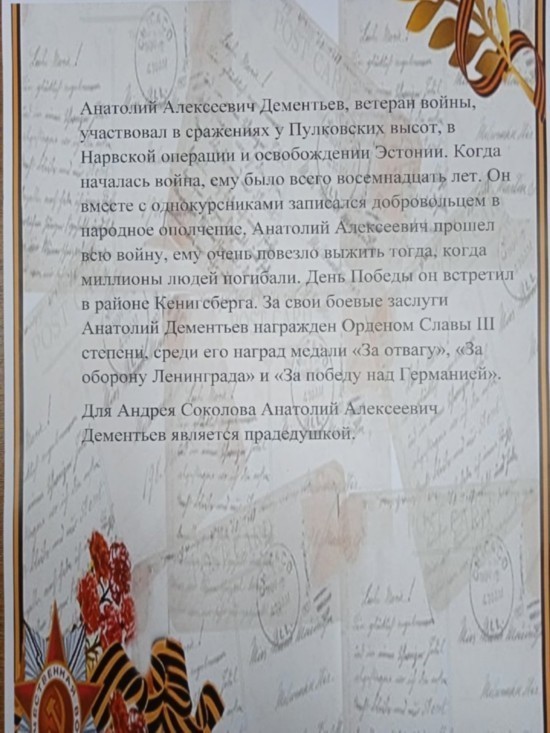 Анатолий Алексеевич Дементьев, ветеран войны,
участвовал в сражениях у Пулковских высот, в
Нарвской операции и освобождении Эстонии. Когда
началась война, ему было всего восемнадцать лет. Он
вместе с однокурсниками записался добровольцем в
народное ополчение. Анатолий Алексеевич прошел
всю войну, ему очень повезло выжить тогда, когда
миллионы людей погибали. День Победы он встретил
в районе Кенигсберга. За свои боевые заслуги
Анатолий Дементьев награжден Орденом Славы III
степени, среди его наград медали «За отвагу», «За
оборону Ленинграда» и «За победу над Германией».
Для Андрея Соколова Анатолий Алексеевич
Дементьев является прадедушкой.